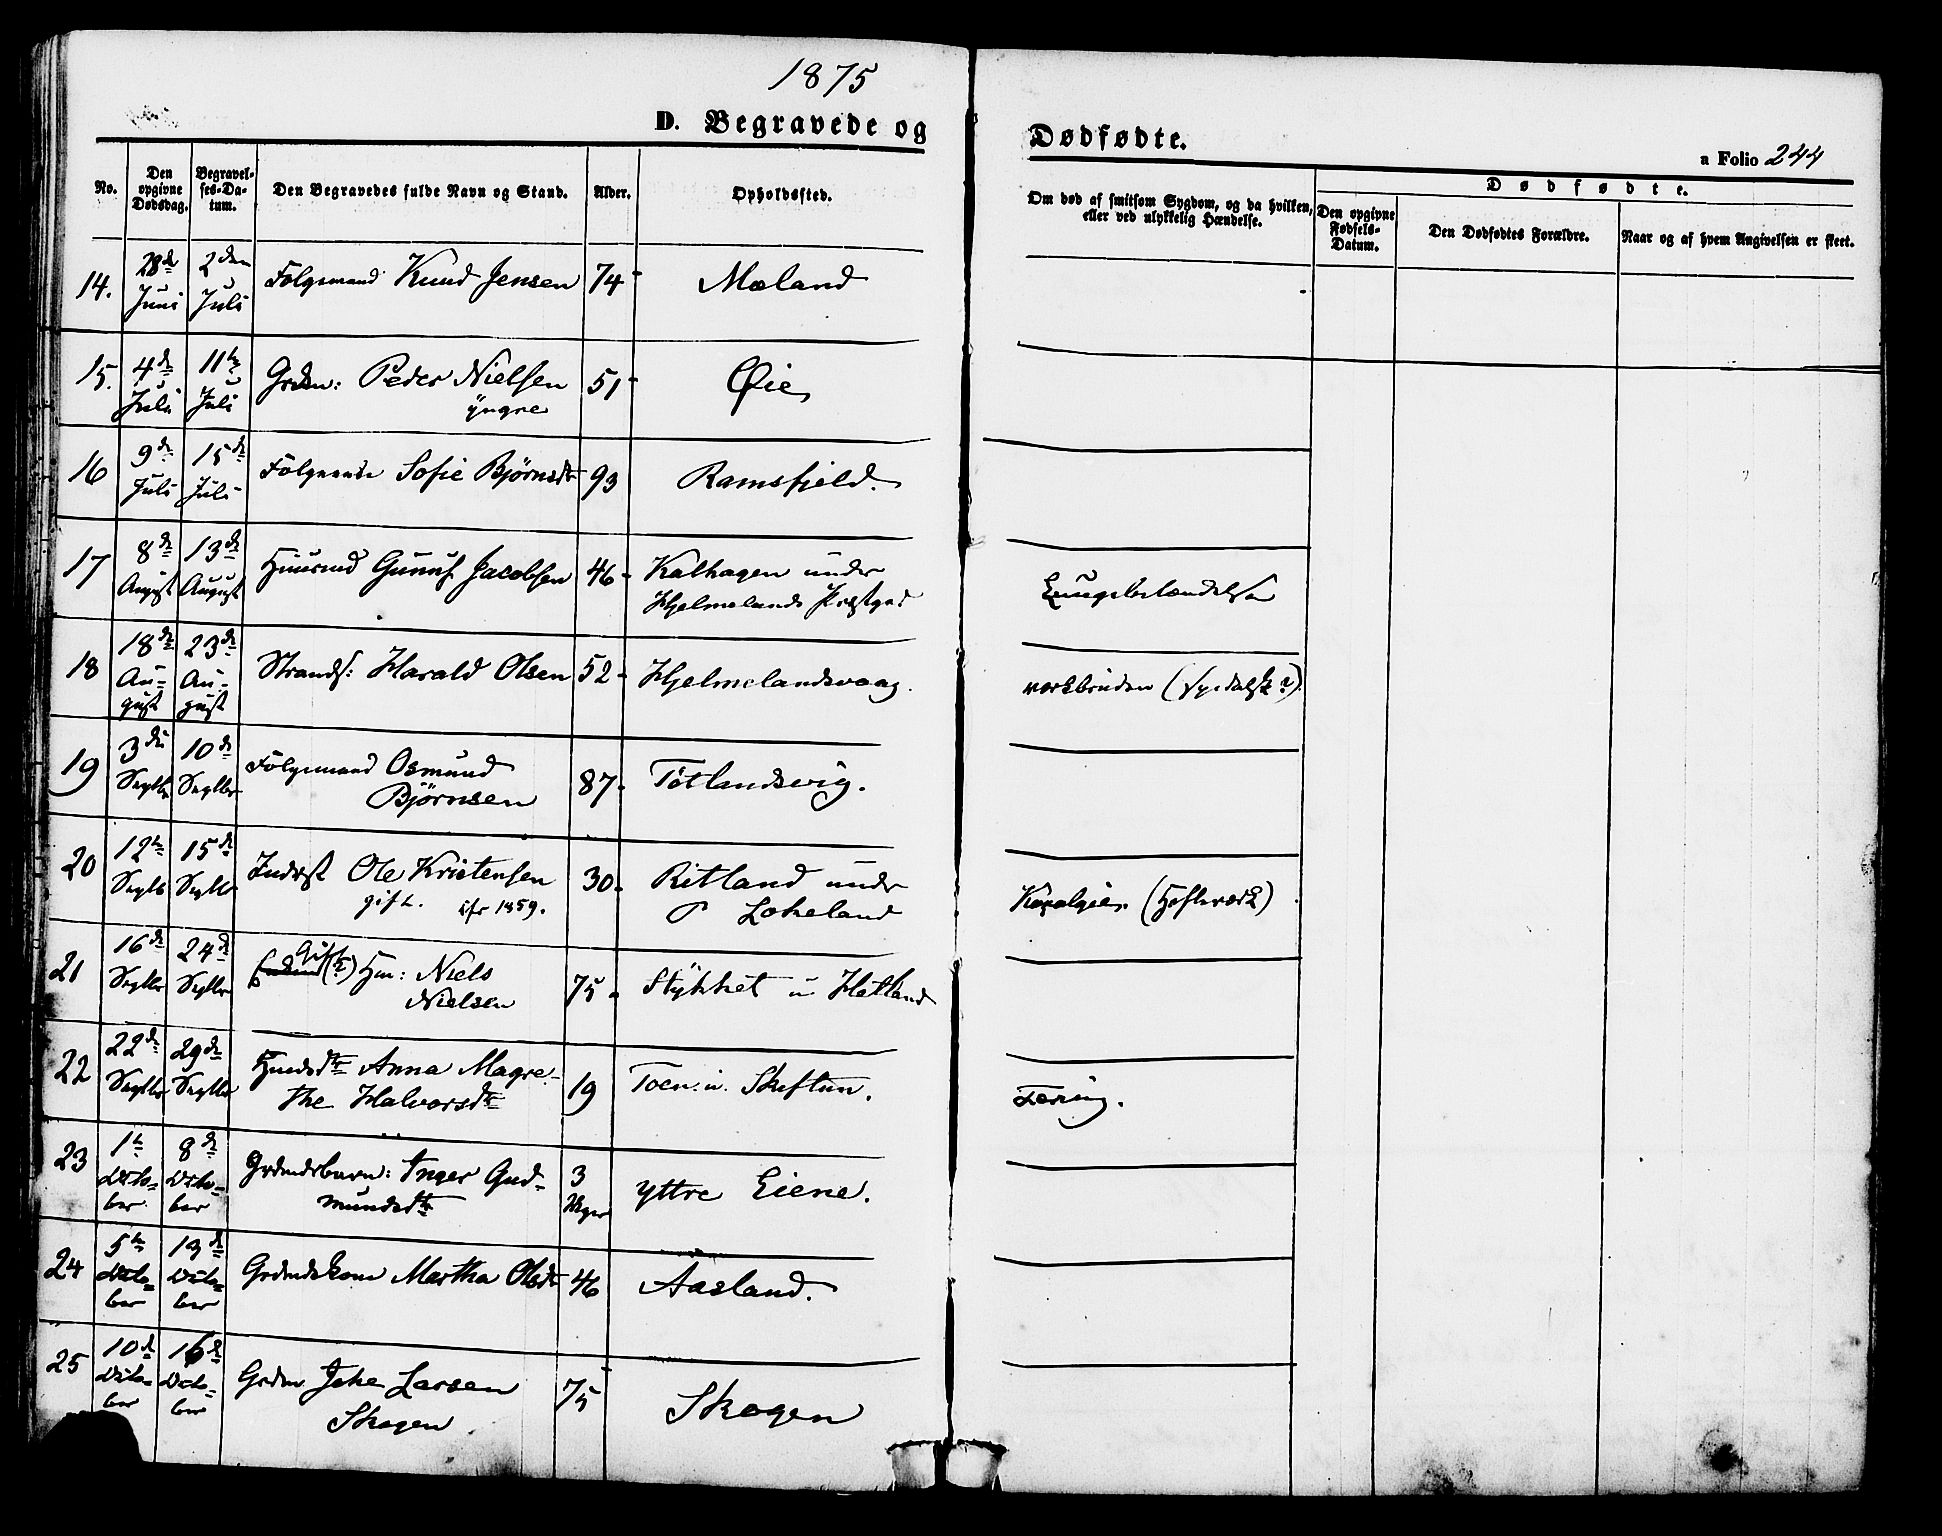 1875
D. Begravede og Dødfødte.
a Folio 244
No. Den opgivne Dødsdag. Begravelses-Datum. Den Begravedes fulde Navn og Stand. Alder. Opholdssted. Om død af smitsom Sygdom, og da hvilken, eller ved ulykkelig Hændelse.
Dødfødte.
Den opgivne Fødsels-Datum. Den Dødfødtes Forældre. Naar og af hvem Angivelsen er skeet.
14. 28de Juni 2den Juli Følgemand Knud Jensen 74 Mæland
15. 4de Juli 11te Juli Grdm: Peder Nielsen 51 Øie
yngre
16 9de Juli 15de Juli Sofie Björnsdtr 93 Ramsfjeld.
17 8de August 13de August Huusmd Gunuf Jacobsen 46 Kalhagen under
Hjelmelands Præstgrd
Lungebetændelse
18 18de August 23de August Strands: Harald Olsen 52 Hjelmelandsvaag.
værkbruden (Spedalsk?)
19 3die Septbr 10de Septbr Følgemand Osmund
Björnsen
87 Tötlandsvig.
20 12te Septb 15de Septbr Inderst Ole Kristensen 30 Ritland under
gift. 1859. Lokeland
(Hofteværk)
21 16de Septbr 24de Septbr Gift (?) Hm: Niels
Nielsen
75 Stykket u Hetland
22 22de Septbr 29de Septbr Husmdsdtr Anna Magre-
the Halvorsdtr
19 Toen u. Skiftun.
Tæring.
23 1te October 8de October Grdmdsbarn: Inger Gud-
mundsdtr
3 Uger
yttre Eiene.
24 5te October 13de October Grdmdskone Martha Olsdtr 46 Aasland.
25 10de October 16de October Grdm Larsen
Skogen
75 Skogen